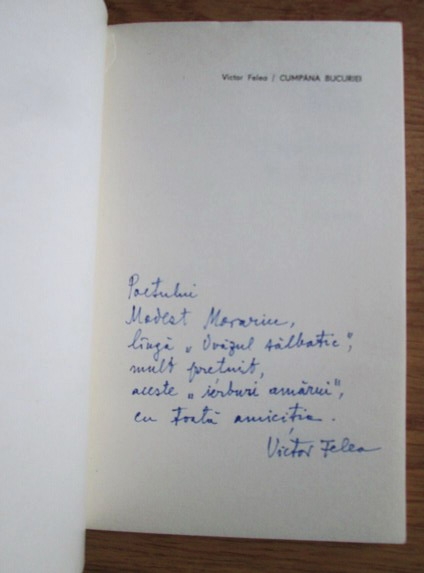 Victor Felea / CUMPĂNA BUCURIEI
Poetului
Modest Morariu,
lîngă „Ovăzul sălbatic",
mult prețuit,
aceste „ierburi amărui",
cu toată amiciția.
Victor Felea